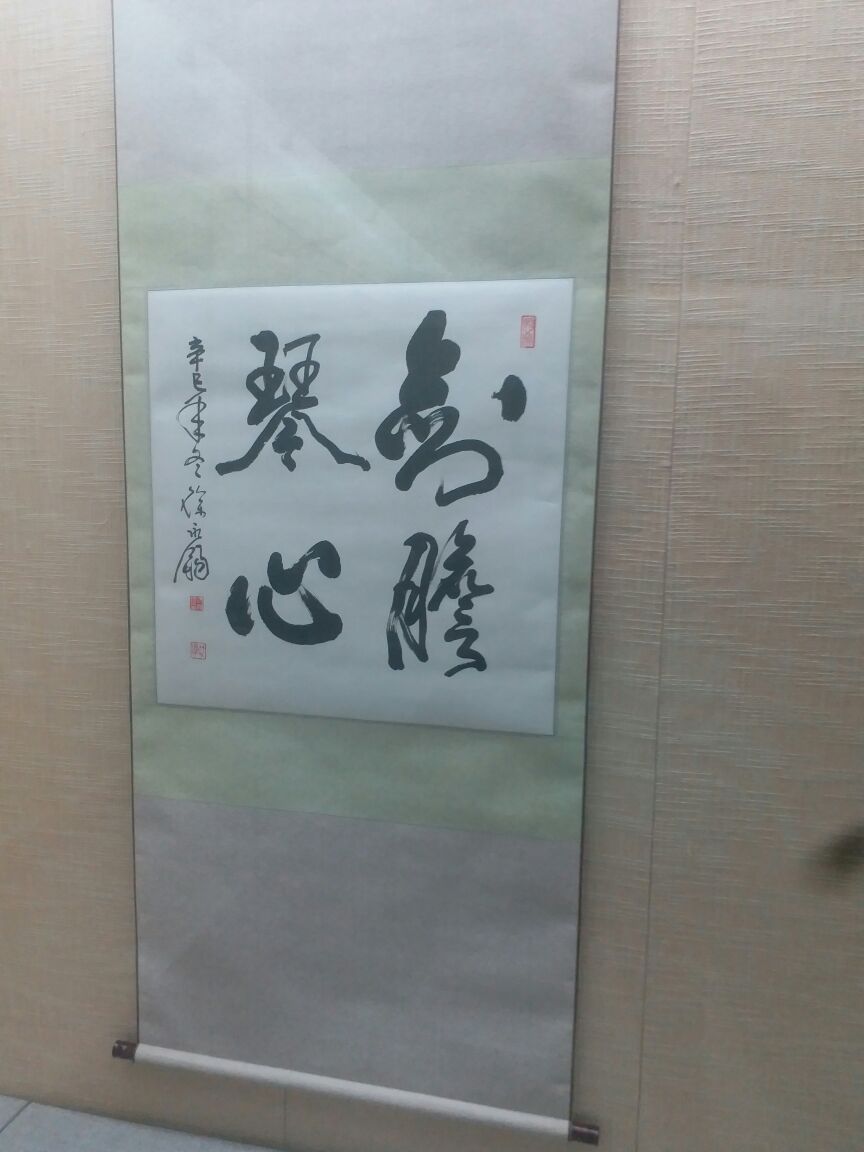 剑膽
琴心
辛巳年冬徐永